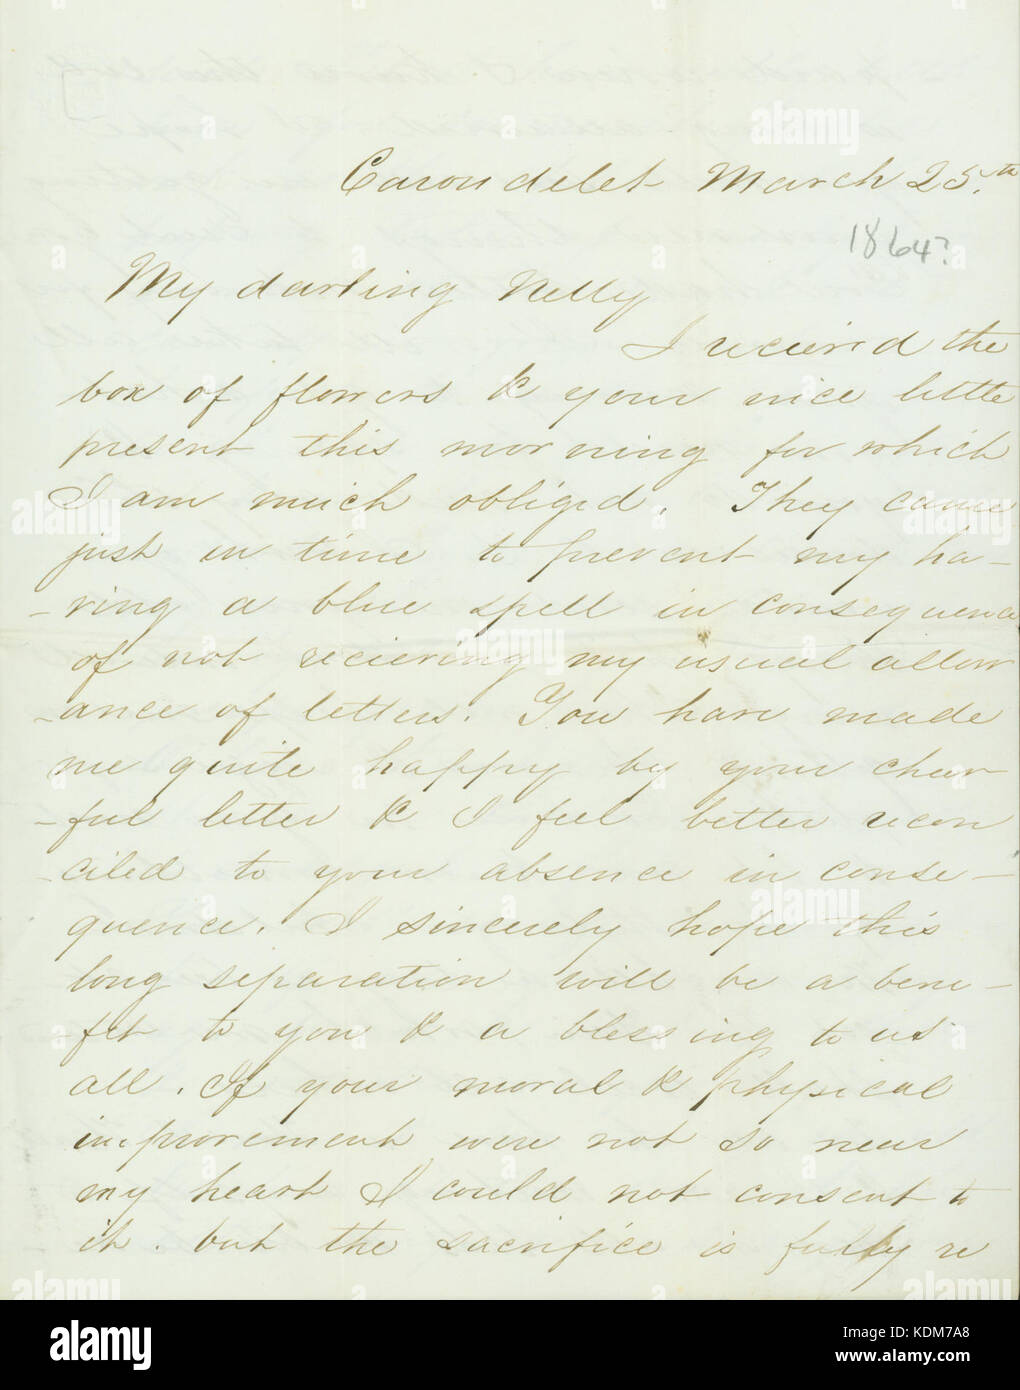 Carondelet March 25.th
1864?
My darling Nelly
I recieved the
box of flowers & your nice little
present this morning for which
I am much obliged. They came
just in time to prevent my ha-
-ving a blue spell in consequence
of not recieveing my usual allow
-ance of letters. You have made
me quite happy by your cheer
-ful letter & I feel better recon
-ciled to your absence in conse-
quence. I sincerely hope this
long separation will be a bene-
fit to you & a blessing to us
all. If your moral & physical
improvement were not so near
my heart I could not consent to
it. but the sacrifice is fully re
alamy
Image ID: KDM7A8
www.alamy.com